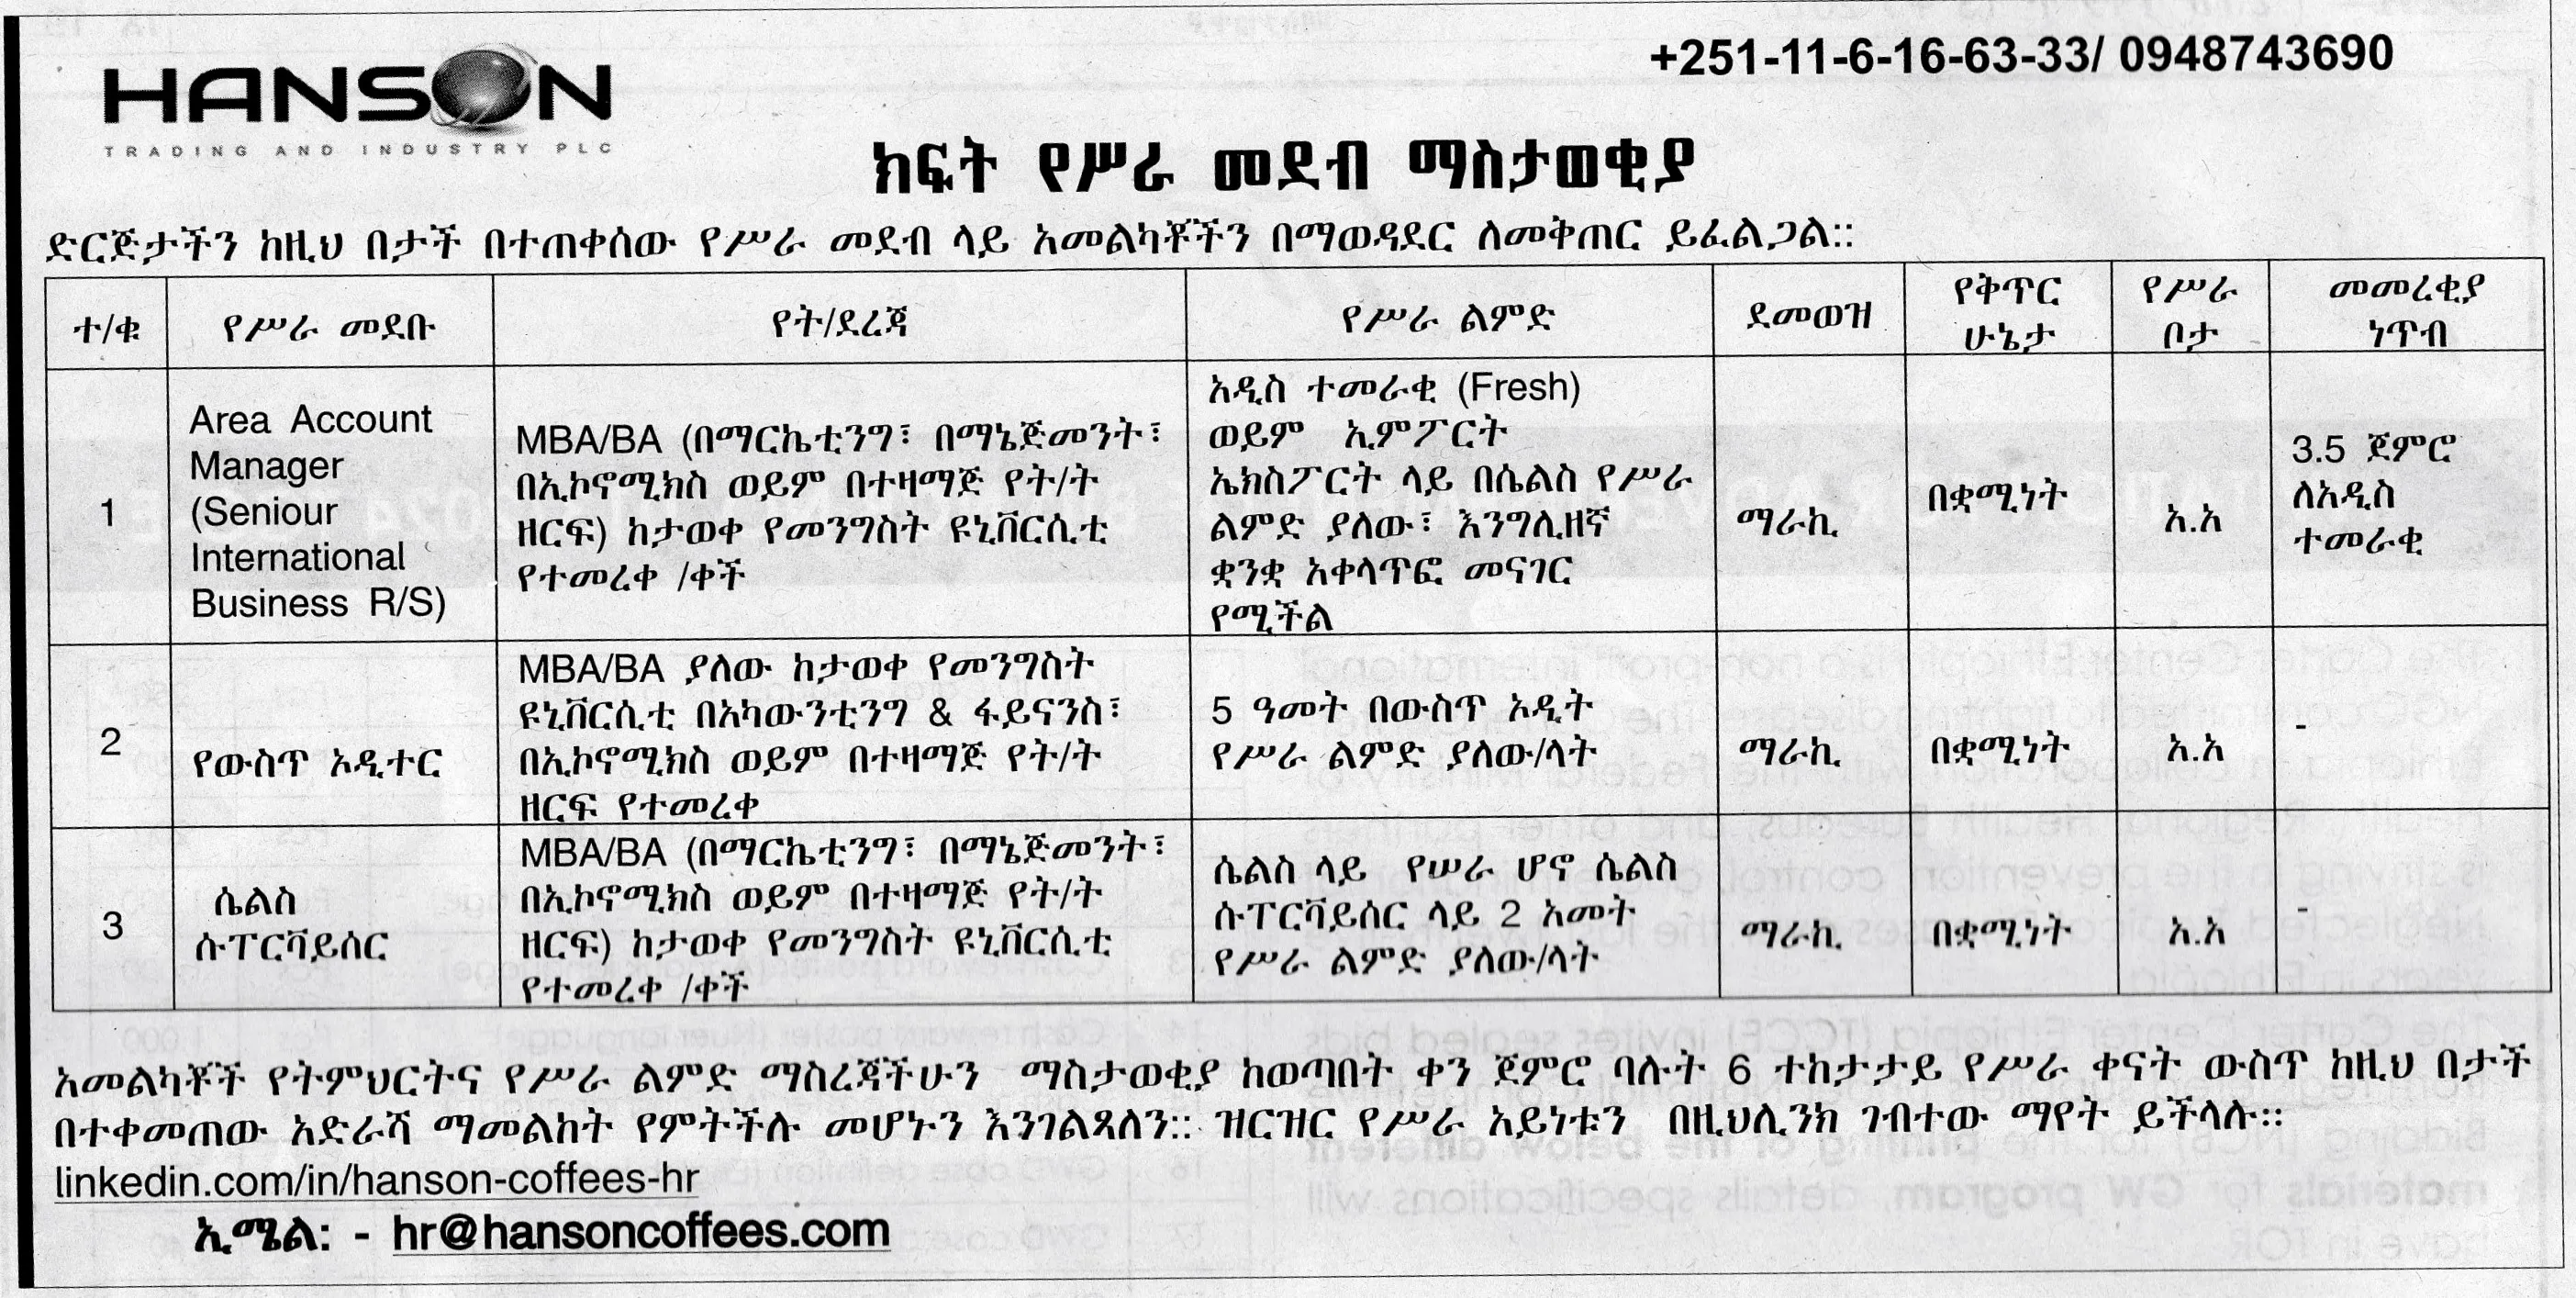 HANSON
TRADING AND INDUSTRY PLC
+251-11-6-16-63-33/ 0948743690
ክፍት የሥራ መደብ ማስታወቂያ
ድርጅታችን ከዚህ በታች በተጠቀሰው የሥራ መደብ ላይ አመልካቾችን በማወዳደር ለመቅጠር ይፈልጋል::
ተ/ቁ
የሥራ መደቡ
የት/ደረጃ
የሥራ ልምድ
ደመወዝ
የቅጥር
ሁኔታ
የሥራ
ቦታ
መመረቂያ
ነጥብ
1
Area Account
Manager
(Seniour
International
Business R/S)
MBA/BA (በማርኬቲንግ፣ በማኔጅመንት፣
በኢኮኖሚክስ ወይም በተዛማጅ የት/ት
ዘርፍ) ከታወቀ የመንግስት ዩኒቨርሲቲ
የተመረቀ /ቀች
አዲስ ተመራቂ (Fresh)
ወይም ኢምፖርት
ኤክስፖርት ላይ በሴልስ የሥራ
ልምድ ያለው፣ እንግሊዘኛ
ቋንቋ አቀላጥፎ መናገር
የሚችል
ማራኪ
በቋሚነት
አ.አ
3.5 ጀምሮ
ለአዲስ
ተመራቂ
2
የውስጥ ኦዲተር
MBA/BA ያለው ከታወቀ የመንግስት
ዩኒቨርሲቲ በአካውንቲንግ & ፋይናንስ፣
በኢኮኖሚክስ ወይም በተዛማጅ የት/ት
ዘርፍ የተመረቀ
5 ዓመት በውስጥ ኦዲት
የሥራ ልምድ ያለው/ላት
ማራኪ
በቋሚነት
አ.አ
-
3
ሴልስ
ሱፐርቫይሰር
MBA/BA (በማርኬቲንግ፣ በማኔጅመንት፣
በኢኮኖሚክስ ወይም በተዛማጅ የት/ት
ዘርፍ) ከታወቀ የመንግስት ዩኒቨርሲቲ
የተመረቀ /ቀች
ሴልስ ላይ የሠራ ሆኖ ሴልስ
ሱፐርቫይሰር ላይ 2 አመት
የሥራ ልምድ ያለው/ላት
ማራኪ
በቋሚነት
አ.አ
-
አመልካቾች የትምህርትና የሥራ ልምድ ማስረጃችሁን ማስታወቂያ ከወጣበት ቀን ጀምሮ ባሉት 6 ተከታታይ የሥራ ቀናት ውስጥ ከዚህ በታች
በተቀመጠው አድራሻ ማመልከት የምትችሉ መሆኑን እንገልጻለን:: ዝርዝር የሥራ አይነቱን በዚህሊንክ ገብተው ማየት ይችላሉ::
linkedin.com/in/hanson-coffees-hr
ኢሜል: - hr@hansoncoffees.com